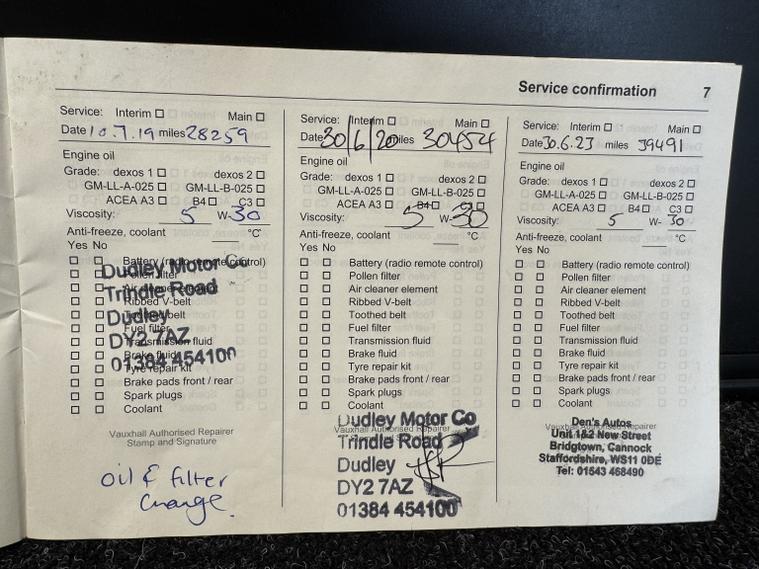 Service confirmation 7
Service: Interim ☐ Main ☐
Date 10.7.19 miles 28259
Engine oil
Grade: dexos 1 ☐ dexos 2 ☐
GM-LL-A-025 ☐ GM-LL-B-025 ☐
ACEA A3 ☐ B4 ☐ C3 ☐
Viscosity: 5 W-30
Anti-freeze, coolant °C
Yes No
Battery (radio remote control)
Pollen filter
Air cleaner element
Ribbed V-belt
Toothed belt
Fuel filter
Transmission fluid
Brake fluid
Tyre repair kit
Brake pads front / rear
Spark plugs
Coolant
Dudley Motor Co
Trindle Road
Dudley
DY2 7AZ
01384 454100
Vauxhall Authorised Repairer
Stamp and Signature
oil & filter
change.
Service: Interim ☐ Main ☐
Date 30/6/20 miles 30454
Engine oil
Grade: dexos 1 ☐ dexos 2 ☐
GM-LL-A-025 ☐ GM-LL-B-025 ☐
ACEA A3 ☐ B4 ☐ C3 ☐
Viscosity: 5 W-30
Anti-freeze, coolant °C
Yes No
Battery (radio remote control)
Pollen filter
Air cleaner element
Ribbed V-belt
Toothed belt
Fuel filter
Transmission fluid
Brake fluid
Tyre repair kit
Brake pads front / rear
Spark plugs
Coolant
Vauxhall Authorised Repairer
Dudley Motor Co
Trindle Road
Dudley
DY2 7AZ
01384 454100
Service: Interim ☐ Main ☐
Date 30.6.23 miles 39491
Engine oil
Grade: dexos 1 ☐ dexos 2 ☐
GM-LL-A-025 ☐ GM-LL-B-025 ☐
ACEA A3 ☐ B4 ☐ C3 ☐
Viscosity: 5 W-30
Anti-freeze, coolant °C
Yes No
Battery (radio remote control)
Pollen filter
Air cleaner element
Ribbed V-belt
Toothed belt
Fuel filter
Transmission fluid
Brake fluid
Tyre repair kit
Brake pads front / rear
Spark plugs
Coolant
Den's Autos
Unit 1&2 New Street
Bridgtown, Cannock
Staffordshire, WS11 0DE
Tel: 01543 468490